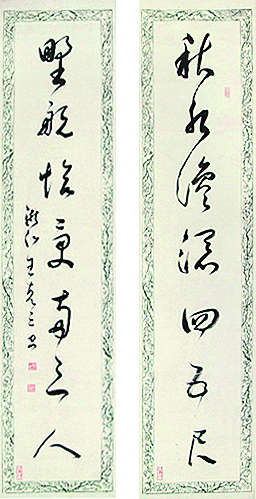 秋水纔深四五尺
野航恰受兩三人